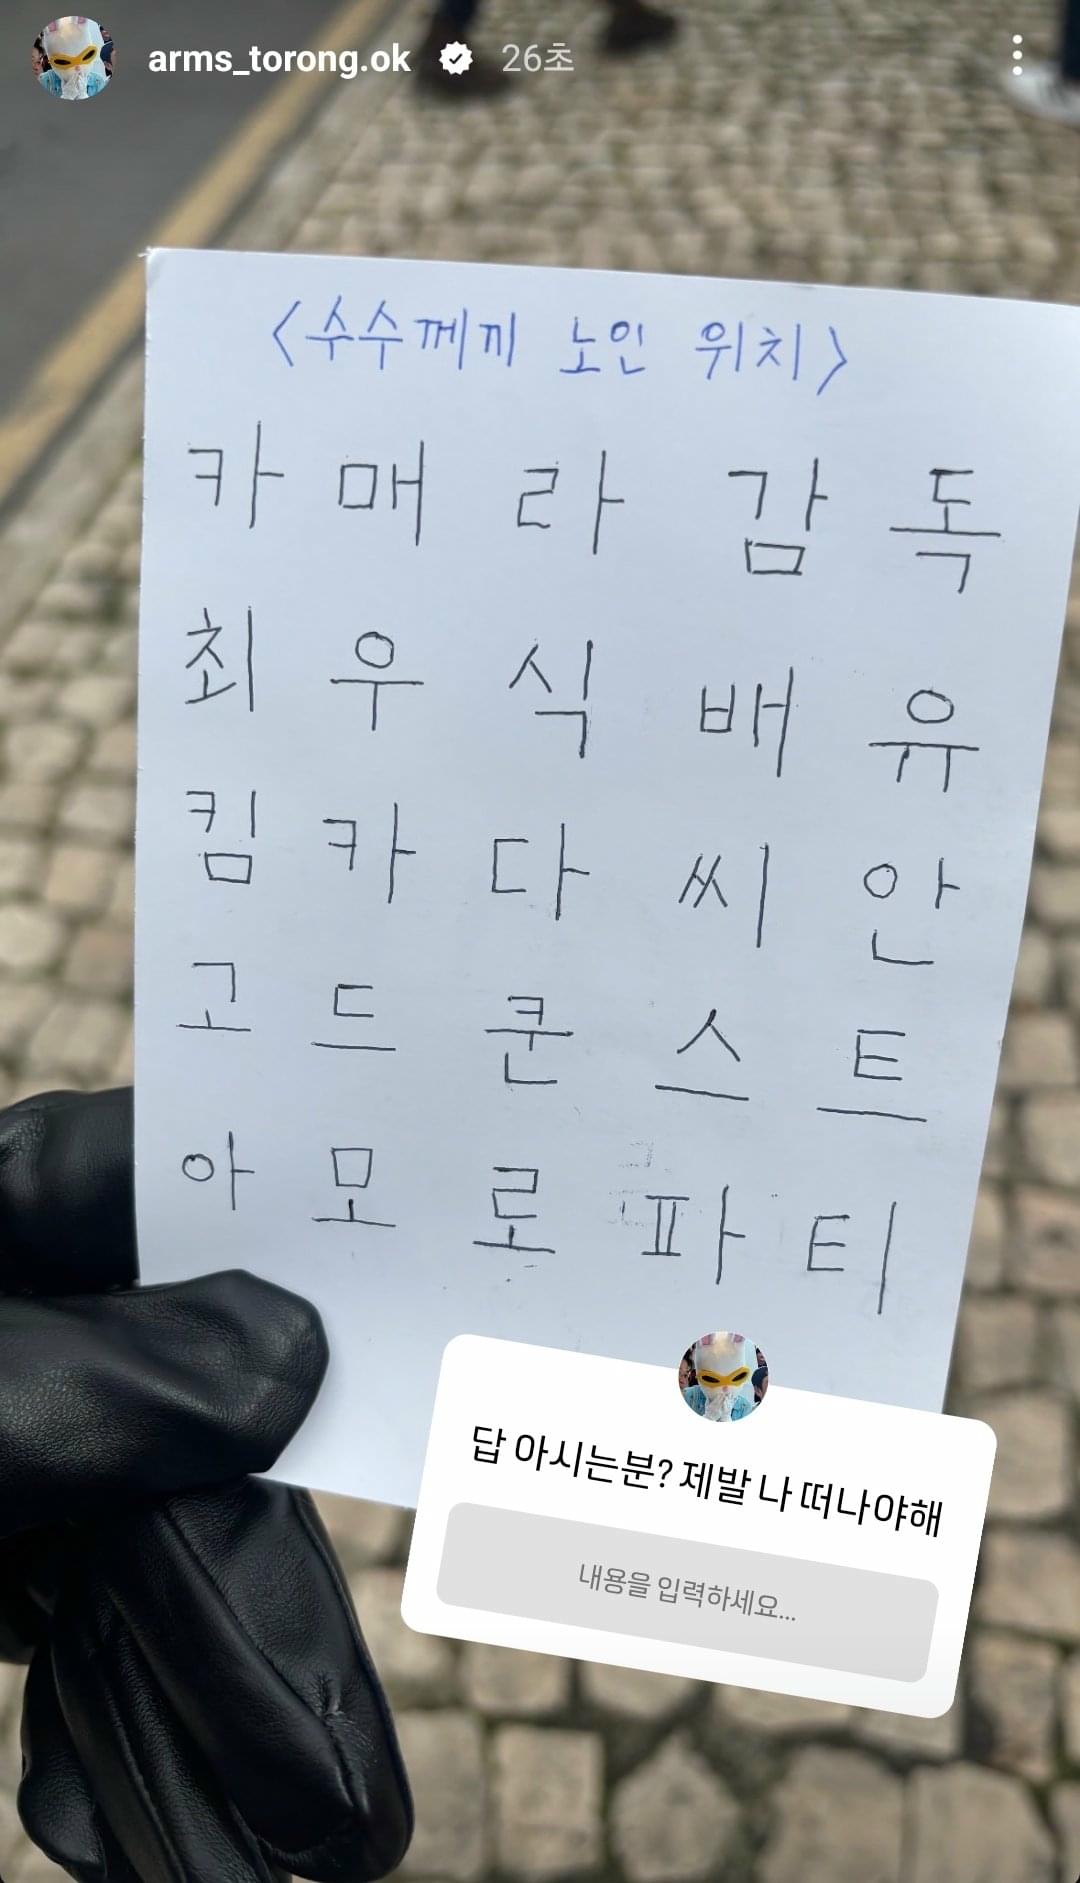 arms_torong.ok 26초
<수수께끼 노인 위치>
카 매 라 감 독
최 우 식 배 유
킴 카 다 씨 안
고 드 쿤 스 트
아 모 로 파 티
답 아시는분? 제발 나 떠나야해
내용을 입력하세요...